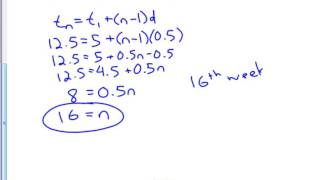 tₙ = t₁ + (n-1)d
12.5 = 5 + (n-1)(0.5)
12.5 = 5 + 0.5n - 0.5
12.5 = 4.5 + 0.5n
8 = 0.5n
16 = n
16th week